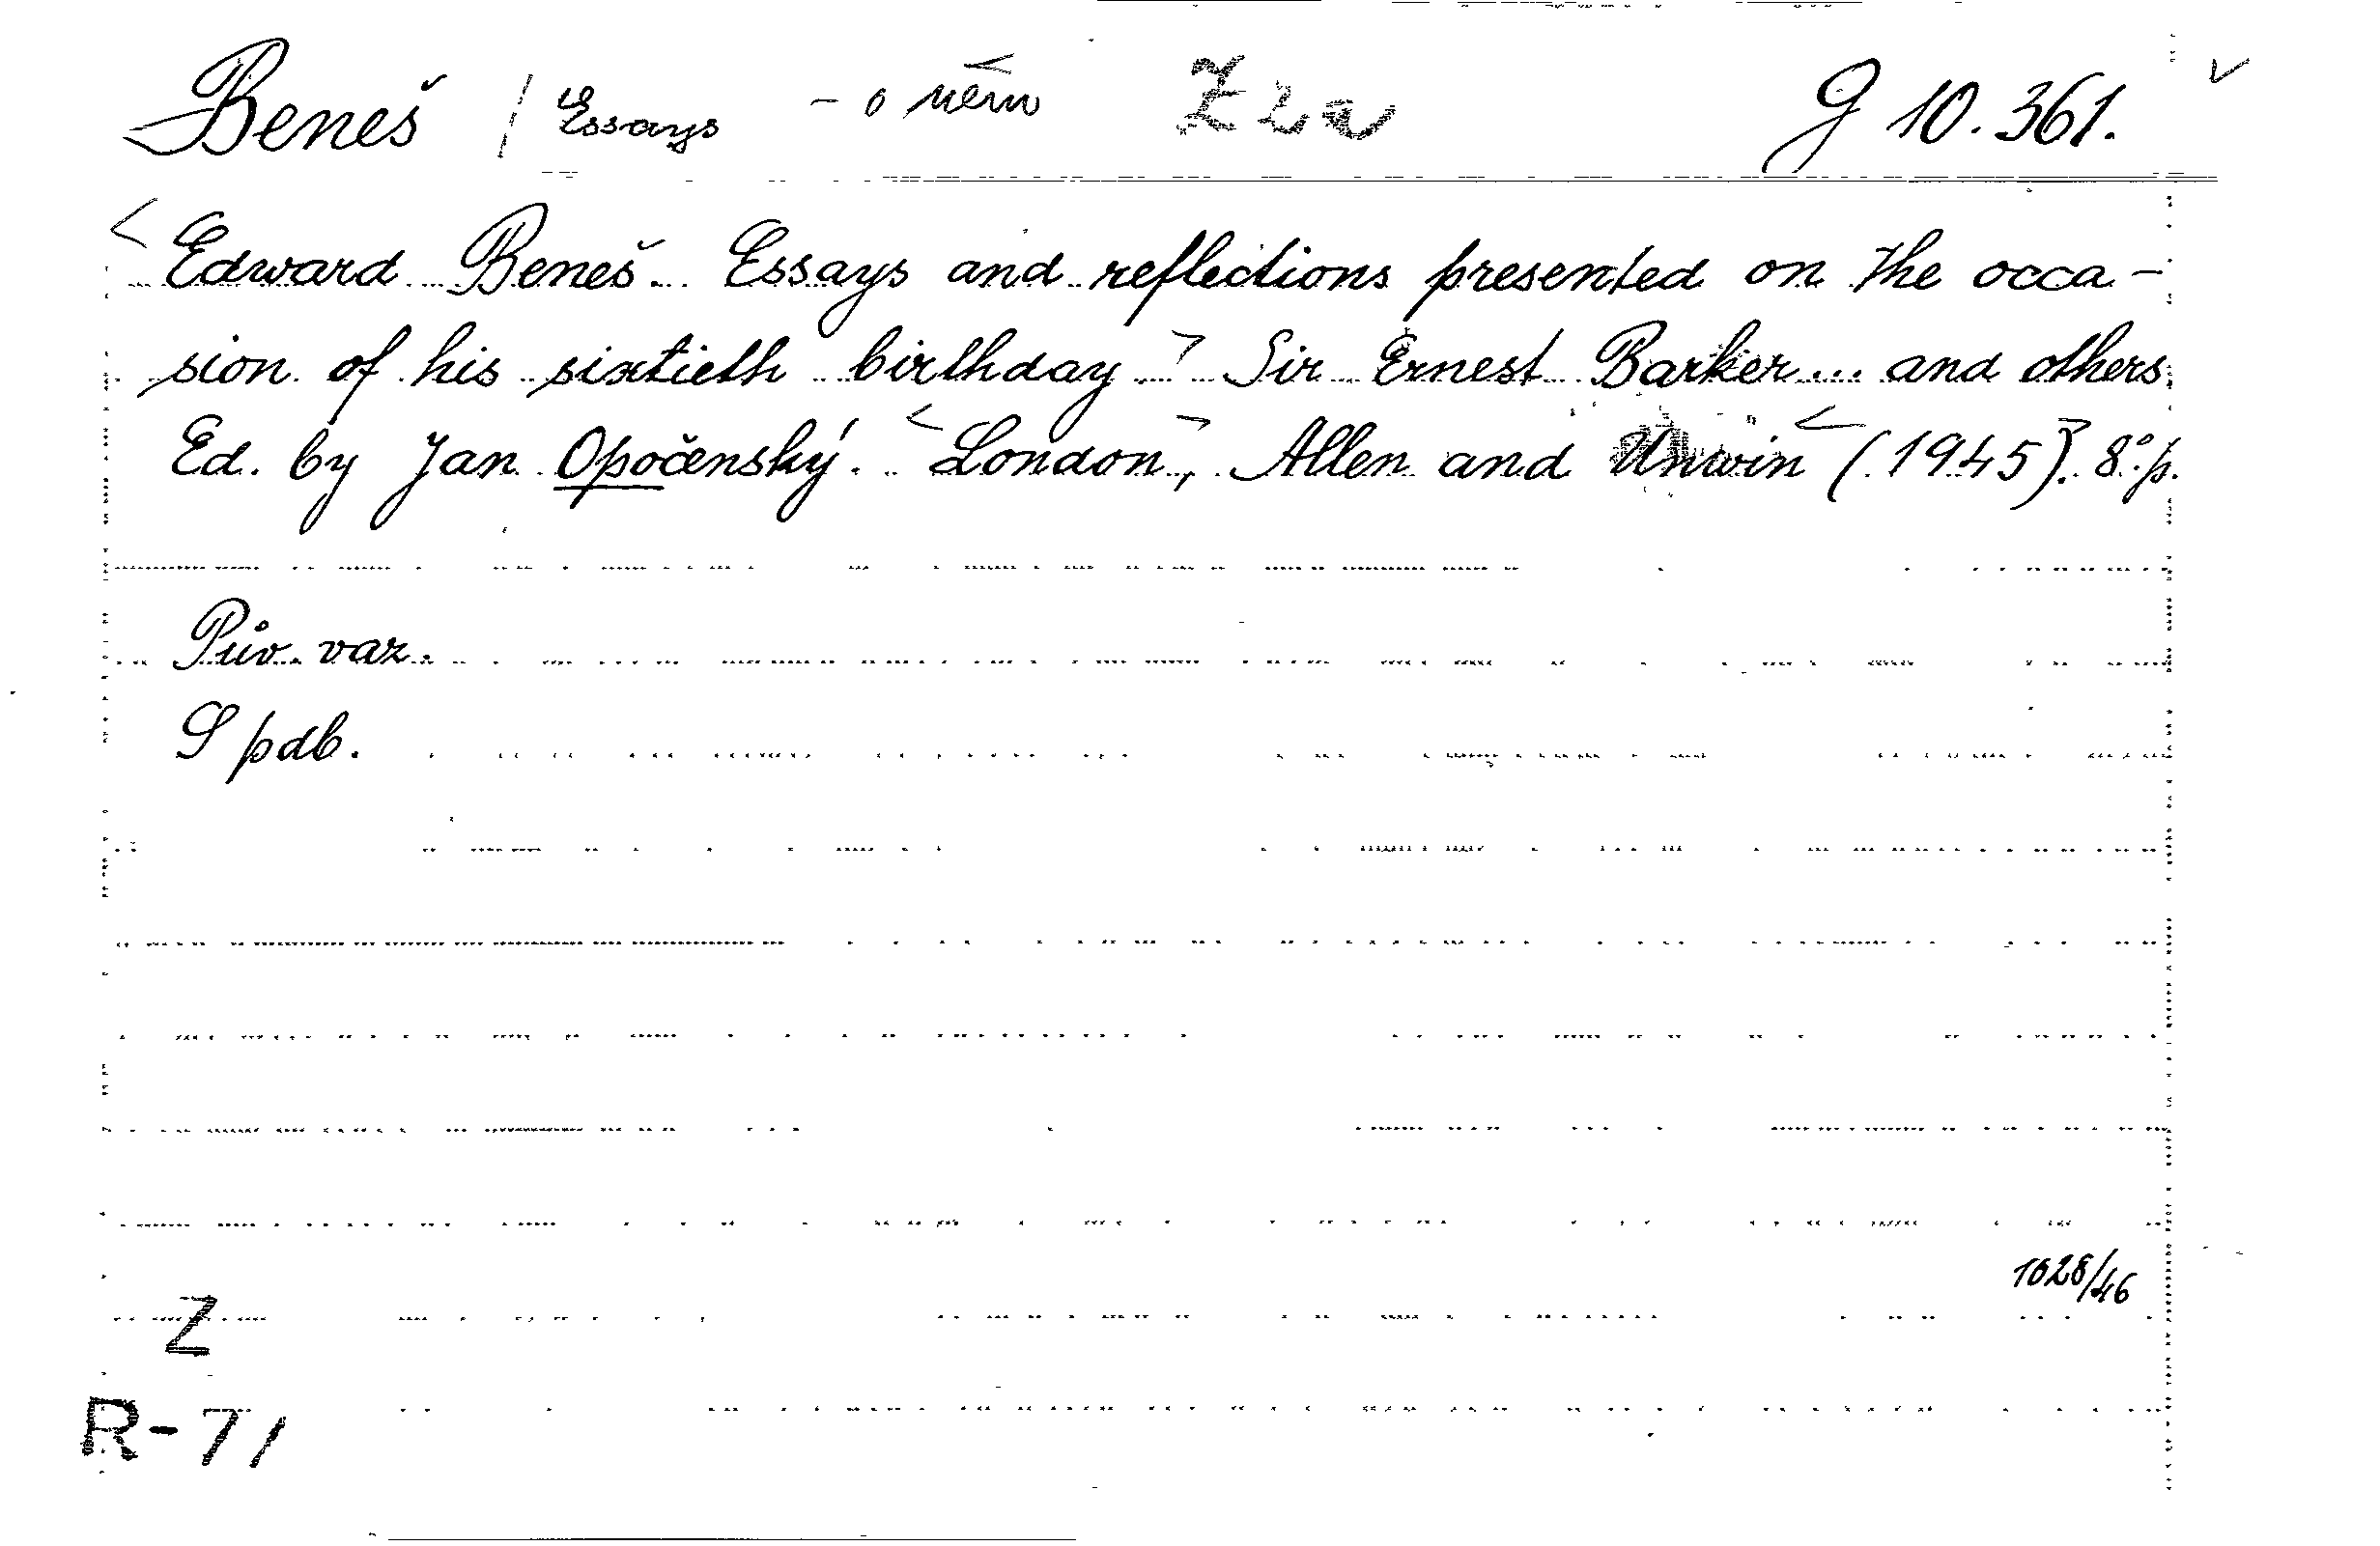 Beneš / Essays - o něm Z 2a G 10.361.
Edward Beneš. Essays and reflections presented on the occa-
sion of his sixtieth birthday. Sir Ernest Barker... and others.
Ed. by Jan Opočenský. London, Allen and Unwin (1945). 8°. p.
Pův. vaz.
S pdb.
1028/46
Z
R-71